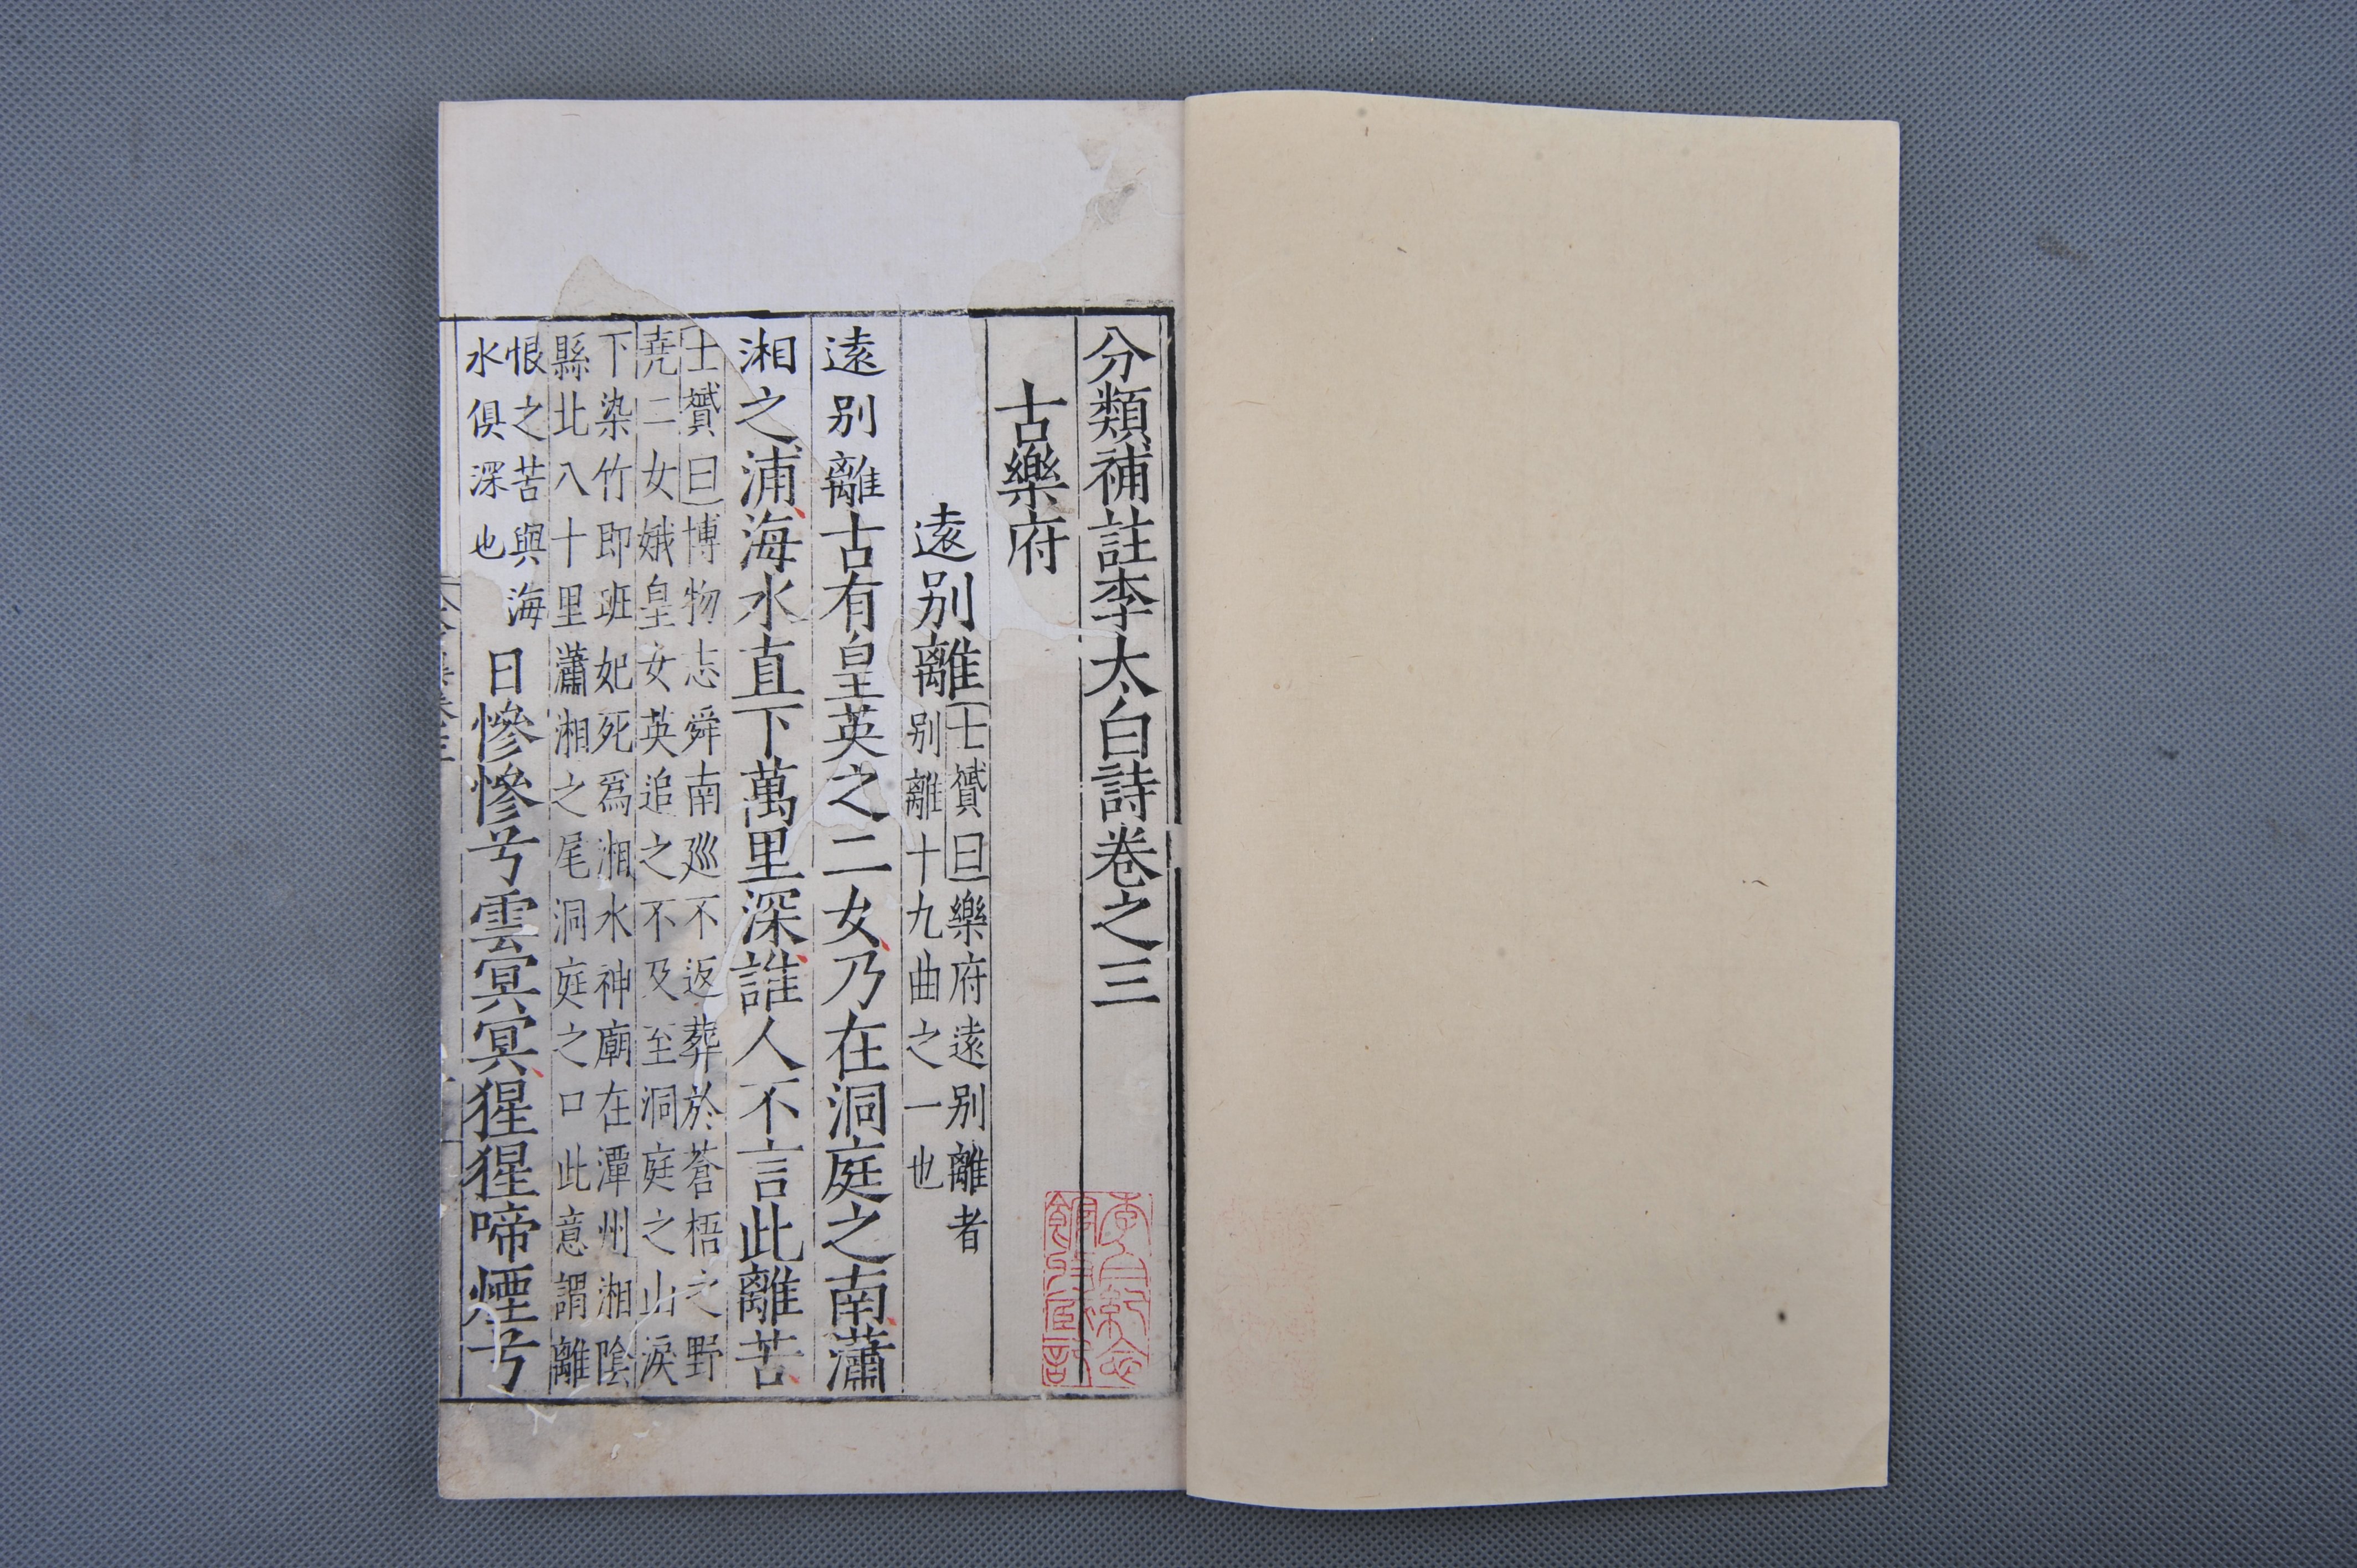 分類補註李太白詩卷之三
古樂府
遠别離
士贇曰樂府遠别離者
别離十九曲之一也
遠别離古有皇英之二女乃在洞庭之南瀟
湘之浦海水直下萬里深誰人不言此離苦
士贇曰博物志舜南廵不返葬於蒼梧之野
堯二女娥皇女英追之不及至洞庭之山淚
下染竹即斑妃死爲湘水神廟在潭州湘陰
縣北八十里瀟湘之尾洞庭之口此意謂離
恨之苦與海
水俱深也
日慘慘兮雲冥冥猩猩啼煙兮
李白紀念
館珍藏記